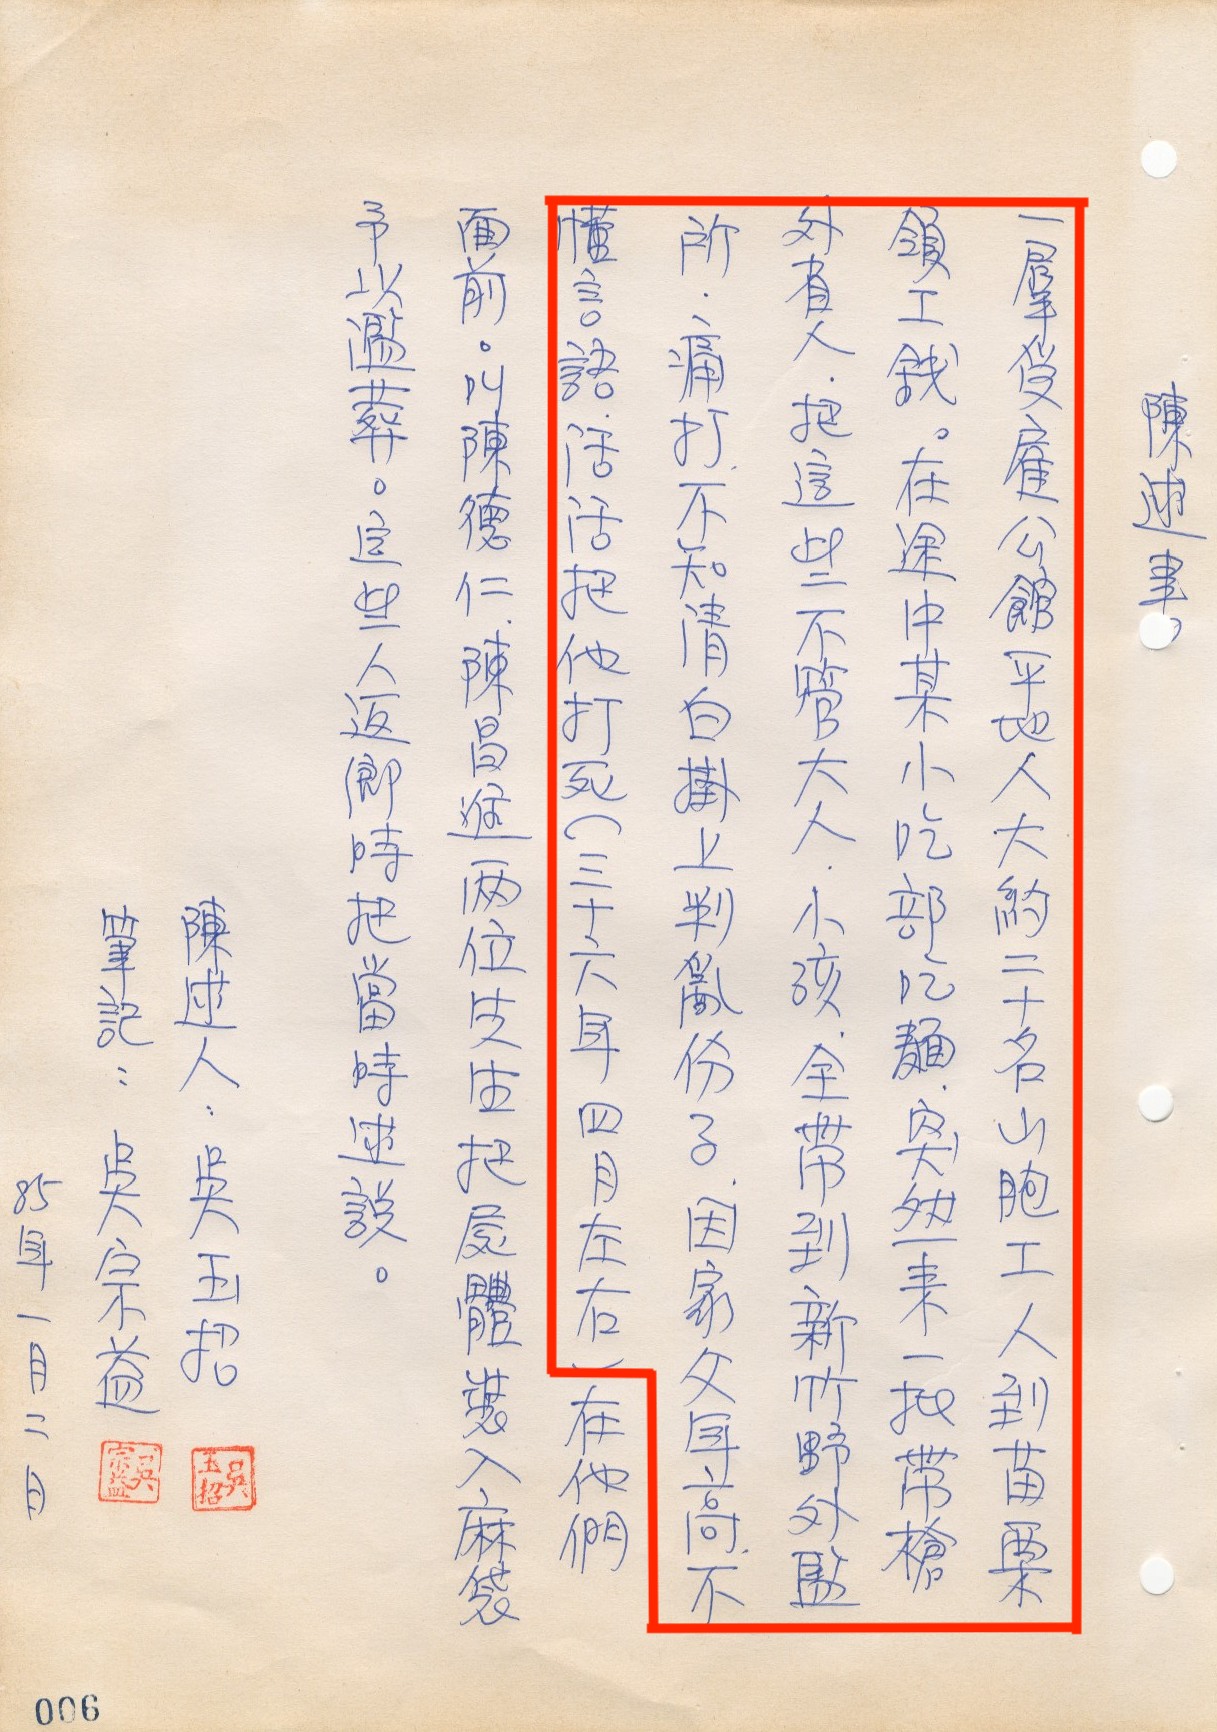 陳述書。
一羣受雇公館平地人大約二十名山胞工人到苗栗
領工錢。在途中某小吃部吃麵.突然來一批帶槍
外省人.把這些不管大人.小孩.全帶到新竹野外監
所.痛打.不知清白掛上判亂份子.因家父年高.不
懂言語.活活把他打死(三十六年四月左右)在他們
面前。叫陳德仁.陳昌 兩位先生把屍體裝入麻袋
予以濫葬。這些人返鄉時把當時述說。
陳述人:吳玉招
吳玉招
筆記:吳宗益
吳宗益
85年一月二日
006